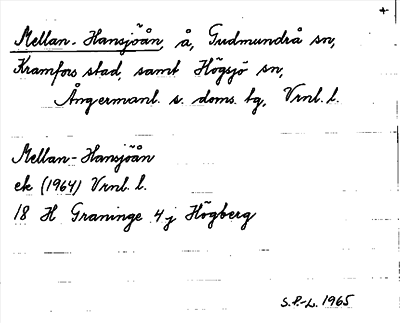 +
Mellan-Hansjöån, å, Gudmundrå sn,
Kramfors stad, samt Högsjö sn,
Ångermanl. s. doms. tg, Vrnl. l.
Mellan-Hansjöån
ek (1964) Vrnl. l.
18 H Graninge 4 j Högberg
S.P.-L. 1965